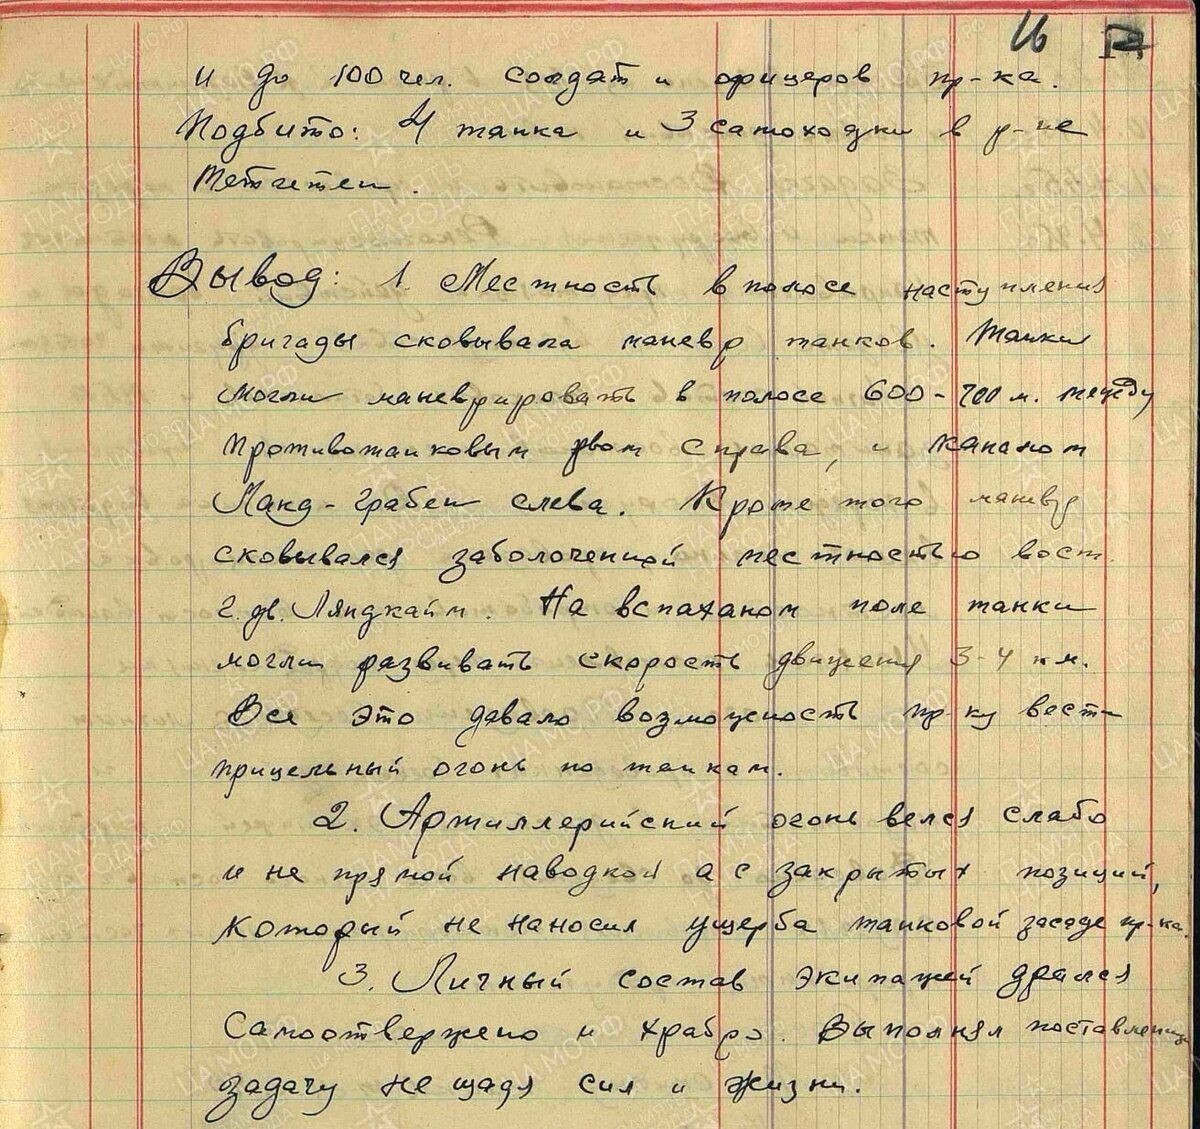 16
и до 100 чел. солдат и офицеров пр-ка.
Подбито: 4 танка и 3 самоходки в р-не
Метгетен.
Вывод: 1. Местность в полосе наступления
бригады сковывала маневр танков. Танки
могли маневрировать в полосе 600-700 м. между
противотанковым рвом справа, и каналом
Ланд-грабен слева. Кроме того маневр
сковывался заболоченной местностью вост.
г. дв. Ляндкайм. На вспаханом поле танки
могли развивать скорость движения 3-4 км.
Все это давало возможность пр-ку вести
прицельный огонь по танкам.
2. Артиллерийский огонь велся слабо
и не прямой наводкой а с закрытых позиций,
который не наносил ущерба танковой засаде пр-ка.
3. Личный состав экипажей дрался
самоотвержено и храбро. Выполнял поставленную
задачу не щадя сил и жизни.